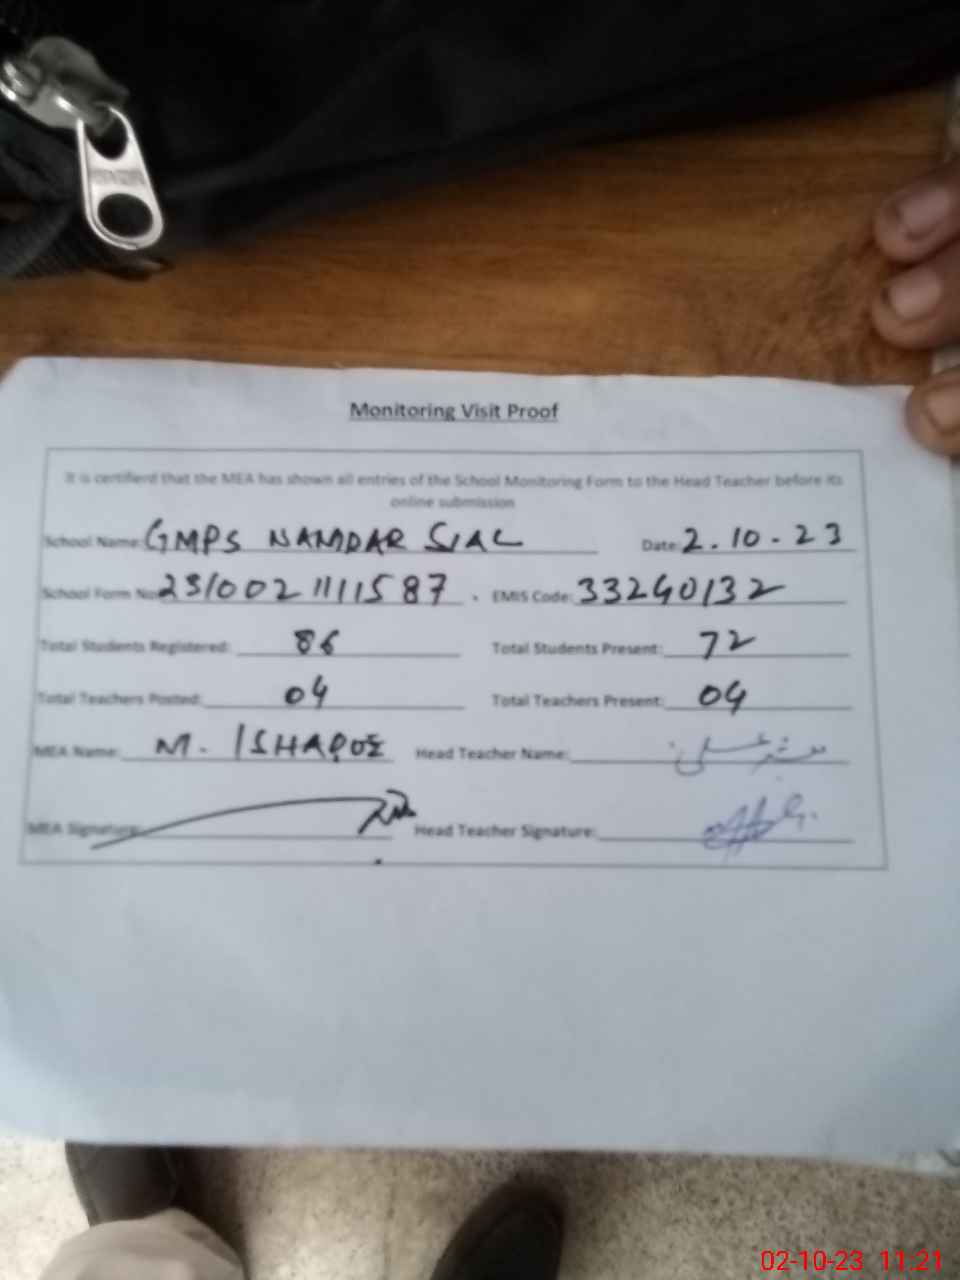 Monitoring Visit Proof
It is certifierd that the MEA has shown all entries of the School Monitoring Form to the Head Teacher before its
online submission
School Name: GMPS NAMDAR SIAL Date: 2.10.23
School Form No: 231002111587 . EMIS Code: 33240132
Total Students Registered: 86 Total Students Present: 72
Total Teachers Posted: 04 Total Teachers Present: 04
MEA Name: M. ISHAQUE Head Teacher Name:
MEA Signature: Head Teacher Signature:
02-10-23 11:21